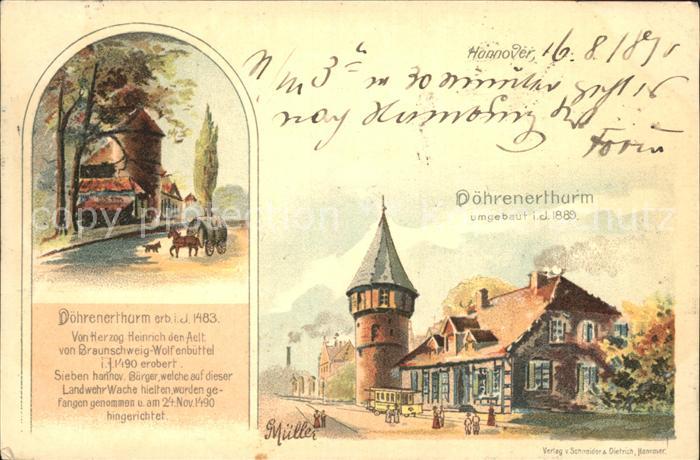 Hannover, 16.8.189
3 30 minuten geht es
nach Hamburg
Döhrenerthurm
umgebaut i.d. 1889.
Döhrenerthurm erb. i.J. 1483.
Von Herzog Heinrich den Aelt.
von Braunschweig-Wolfenbüttel
i.J. 1490 erobert.
Sieben hannov. Bürger, welche auf dieser
Landwehr Wache hielten, wurden ge-
fangen genommen u. am 24. Nov. 1490
hingerichtet.
GMüller
Verlag v. Schneider & Dietrich, Hannover.
copy protection